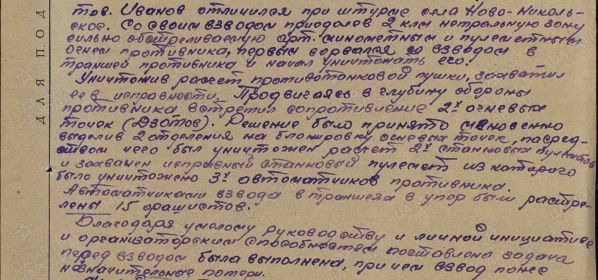 тов. Иванов отличился при штурме села Ново-Николь-
ское. Со своим взводом преодолев 2 клм нетральную зону
сильно обстреливаемую арт. минометным и пулеметным
огнем противника, первым ворвался со взводом в
траншеи противника и начал уничтожать его.
Уничтожив расчет противотанковой пушки, захватил
ее в исправности. Продвигаясь в глубину обороны
противника встретил сопротивление 2х огневых
точек (Дзотов). Решение было принято мгновенно
выделив 2 отделения на блокировку огневых точек, посред-
ством чего был уничтожен расчет 2х станковых пулеметов
и захвачен исправный станковый пулемет из которого
было уничтожено 3х автоматчиков противника.
Автоматчиками взвода в траншеях в упор были расстре-
ляны 15 фрашистов.
Благодаря умелому руководству и личной инициативе
и организаторским способностям поставлена задача
перед взводом была выполнена, при чем взвод понес
незначительные потери.
ДЛЯ ПОД